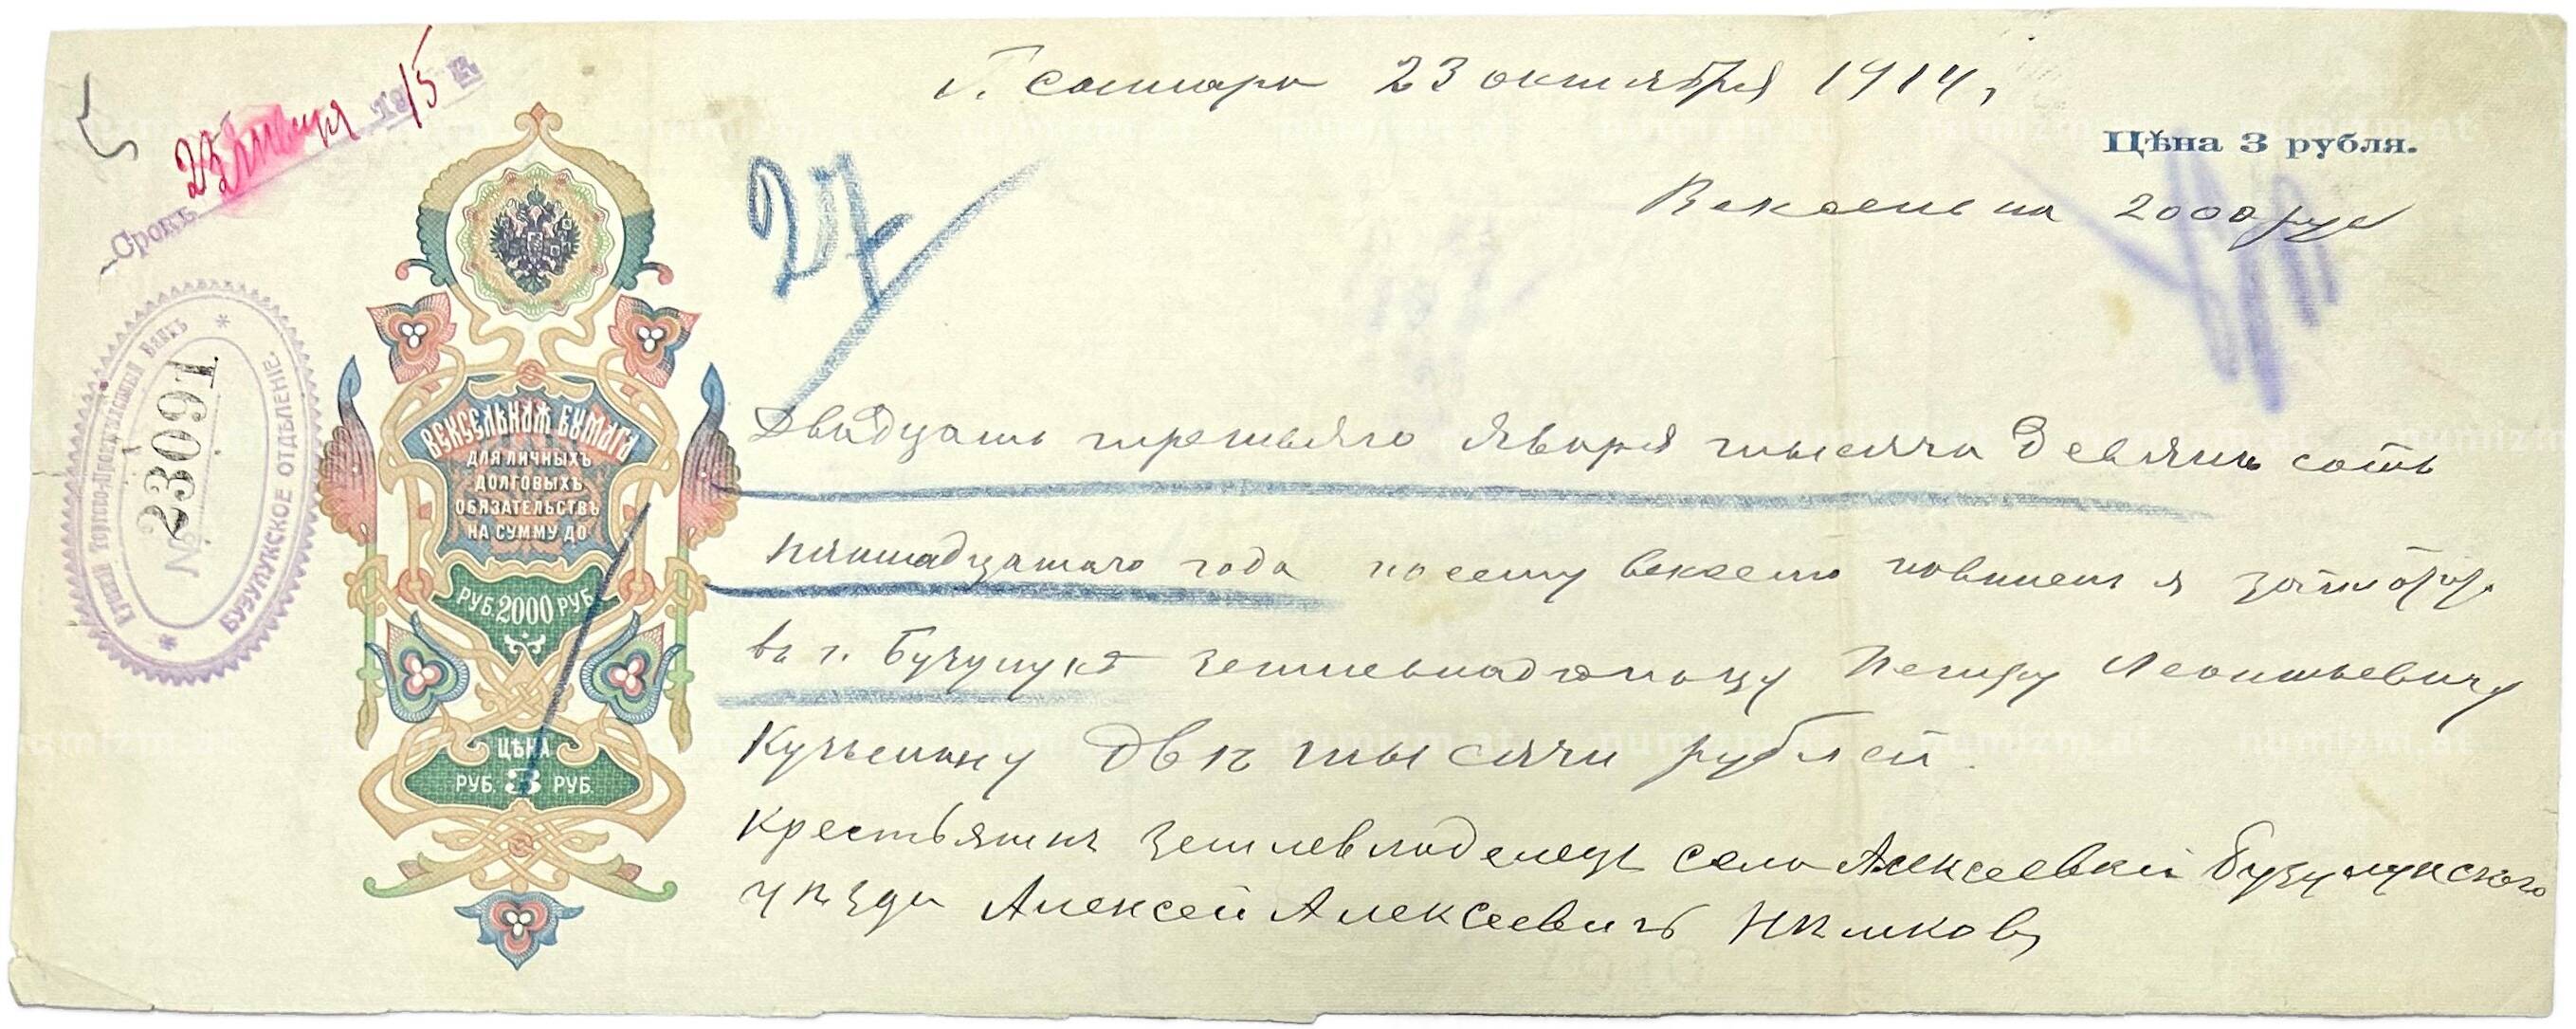 Г. Самара 23 октября 1914,
Цѣна 3 рубля.
Вексель на 2000 руб
Срокъ 23 Января 1915 г.
Торгово-Промышленный Банкъ
№ 23091
БУЗУЛУКСКОЕ ОТДѢЛЕНІЕ.
27
ВЕКСЕЛЬНАЯ БУМАГА
ДЛЯ ЛИЧНЫХЪ
ДОЛГОВЫХЪ
ОБЯЗАТЕЛЬСТВЪ
НА СУММУ ДО
РУБ. 2000 РУБ.
ЦѢНА
РУБ. 3 РУБ.
Двадцать третьяго Января тысяча девять сотъ
пятнадцатаго года по сему векселю повиненъ я заплатить
въ г. Бузулукѣ землевладѣльцу Петру Леонтьевичу
Кузьмину двѣ тысячи рублей.
Крестьянинъ землевладелецъ села Алексеевки Бузулукского
уѣзда Алексей Алексеевичъ